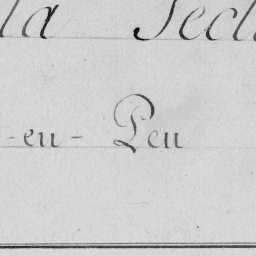 la Sect
-en- Peu